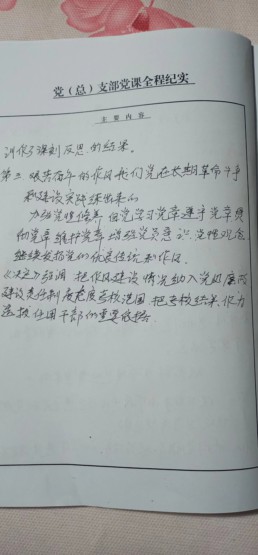 党（总）支部党课全程纪实
主要内容
训作了深刻反思的结果。
第三 艰苦奋斗的作风我们党在长期革命斗争
和建设实践练出来的
加强党性修养 自觉学习党章遵守党章贯
彻党章维护党章 增强党员意识 党性观念
继续发扬党的优良传统和作风
《决定》强调 把作风建设情况纳入党风廉政
建设责任制度考核范围 把考核结果作为
选拔任用干部的重要依据